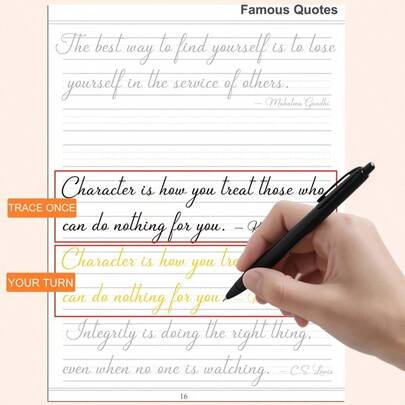 Famous Quotes
The best way to find yourself is to lose
yourself in the service of others.
— Mahatma Gandhi
Character is how you treat those who
TRACE ONCE
can do nothing for you. —
Character is how you
YOUR TURN
can do nothing for you.
Integrity is doing the right thing,
even when no one is watching. — C.S. Lewis
16